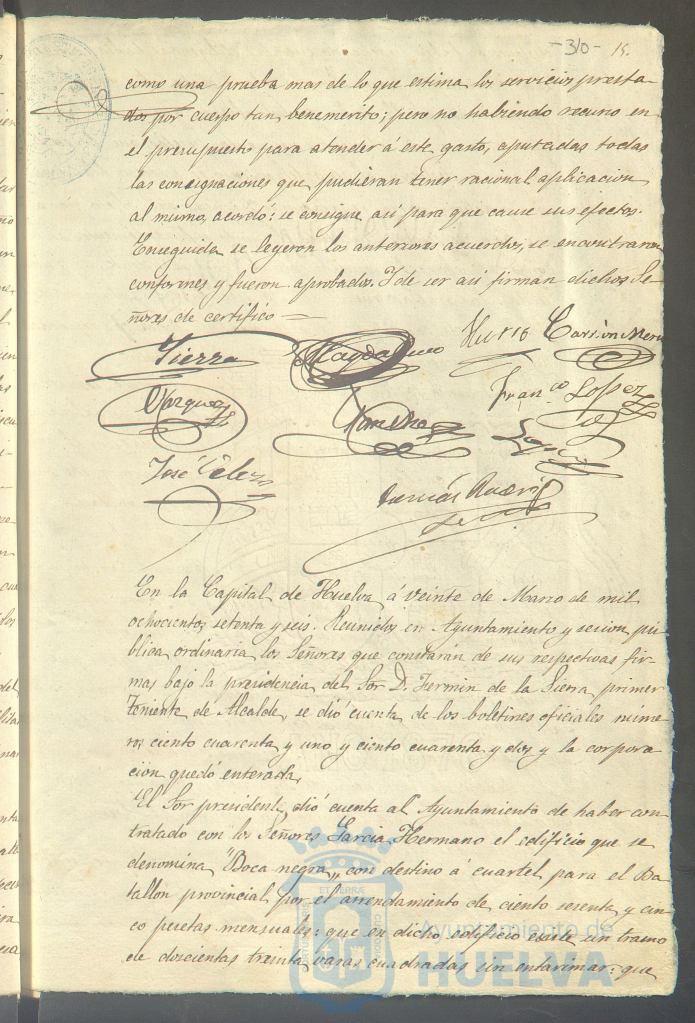 -310- 15.
como una prueba mas de lo que estima los servicios presta-
dos por cuerpo tan benemerito; pero no habiendo recurso en
el presupuesto para atender á este gasto, apuradas todas
las consignaciones que pudieran tener racional aplicacion
al mismo, acordó: se consigne asi para que cause sus efectos.
Enseguida se leyeron los anteriores acuerdos, se encontraron
conformes y fueron aprobados. Y de ser asi firman dichos Se-
ñores de certifico
Sierra
Vazquez
Franco Lopez
Lopez
José
En la Capital de Huelva á veinte de Marzo de mil
ochocientos setenta y seis. Reunidos en Ayuntamiento y sesion pú-
blica ordinaria los Señores que constarán de sus respectivas fir-
mas bajo la presidencia del Sor D. Fermin de la Sierra primer
Teniente de Alcalde, se dió cuenta de los boletines oficiales nume-
ros ciento cuarenta y uno y ciento cuarenta y dos y la corpora
cion quedó enterada.
El Sor presidente dió cuenta al Ayuntamiento de haber con
tratado con los Señores Garcia Hermano el edificio que se
denomina "Boca negra" con destino á cuartel para el Ba
tallon provincial por el arrendamiento de ciento sesenta y cin
co pesetas mensuales: que en dicho edificio existe un tramo
de doscientas treinta varas cuadradas sin entarimar: que
Ayuntamiento de
HUELVA